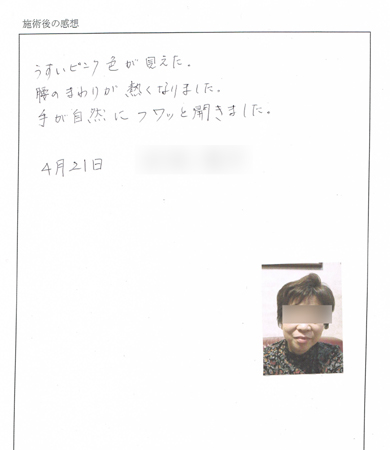 施術後の感想
うすいピンク色が見えた。
腰のまわりが熱くなりました。
手が自然にフワッと開きました。
4月21日